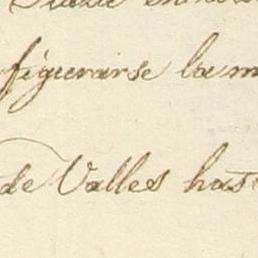 figurarse la m
de Valles hast